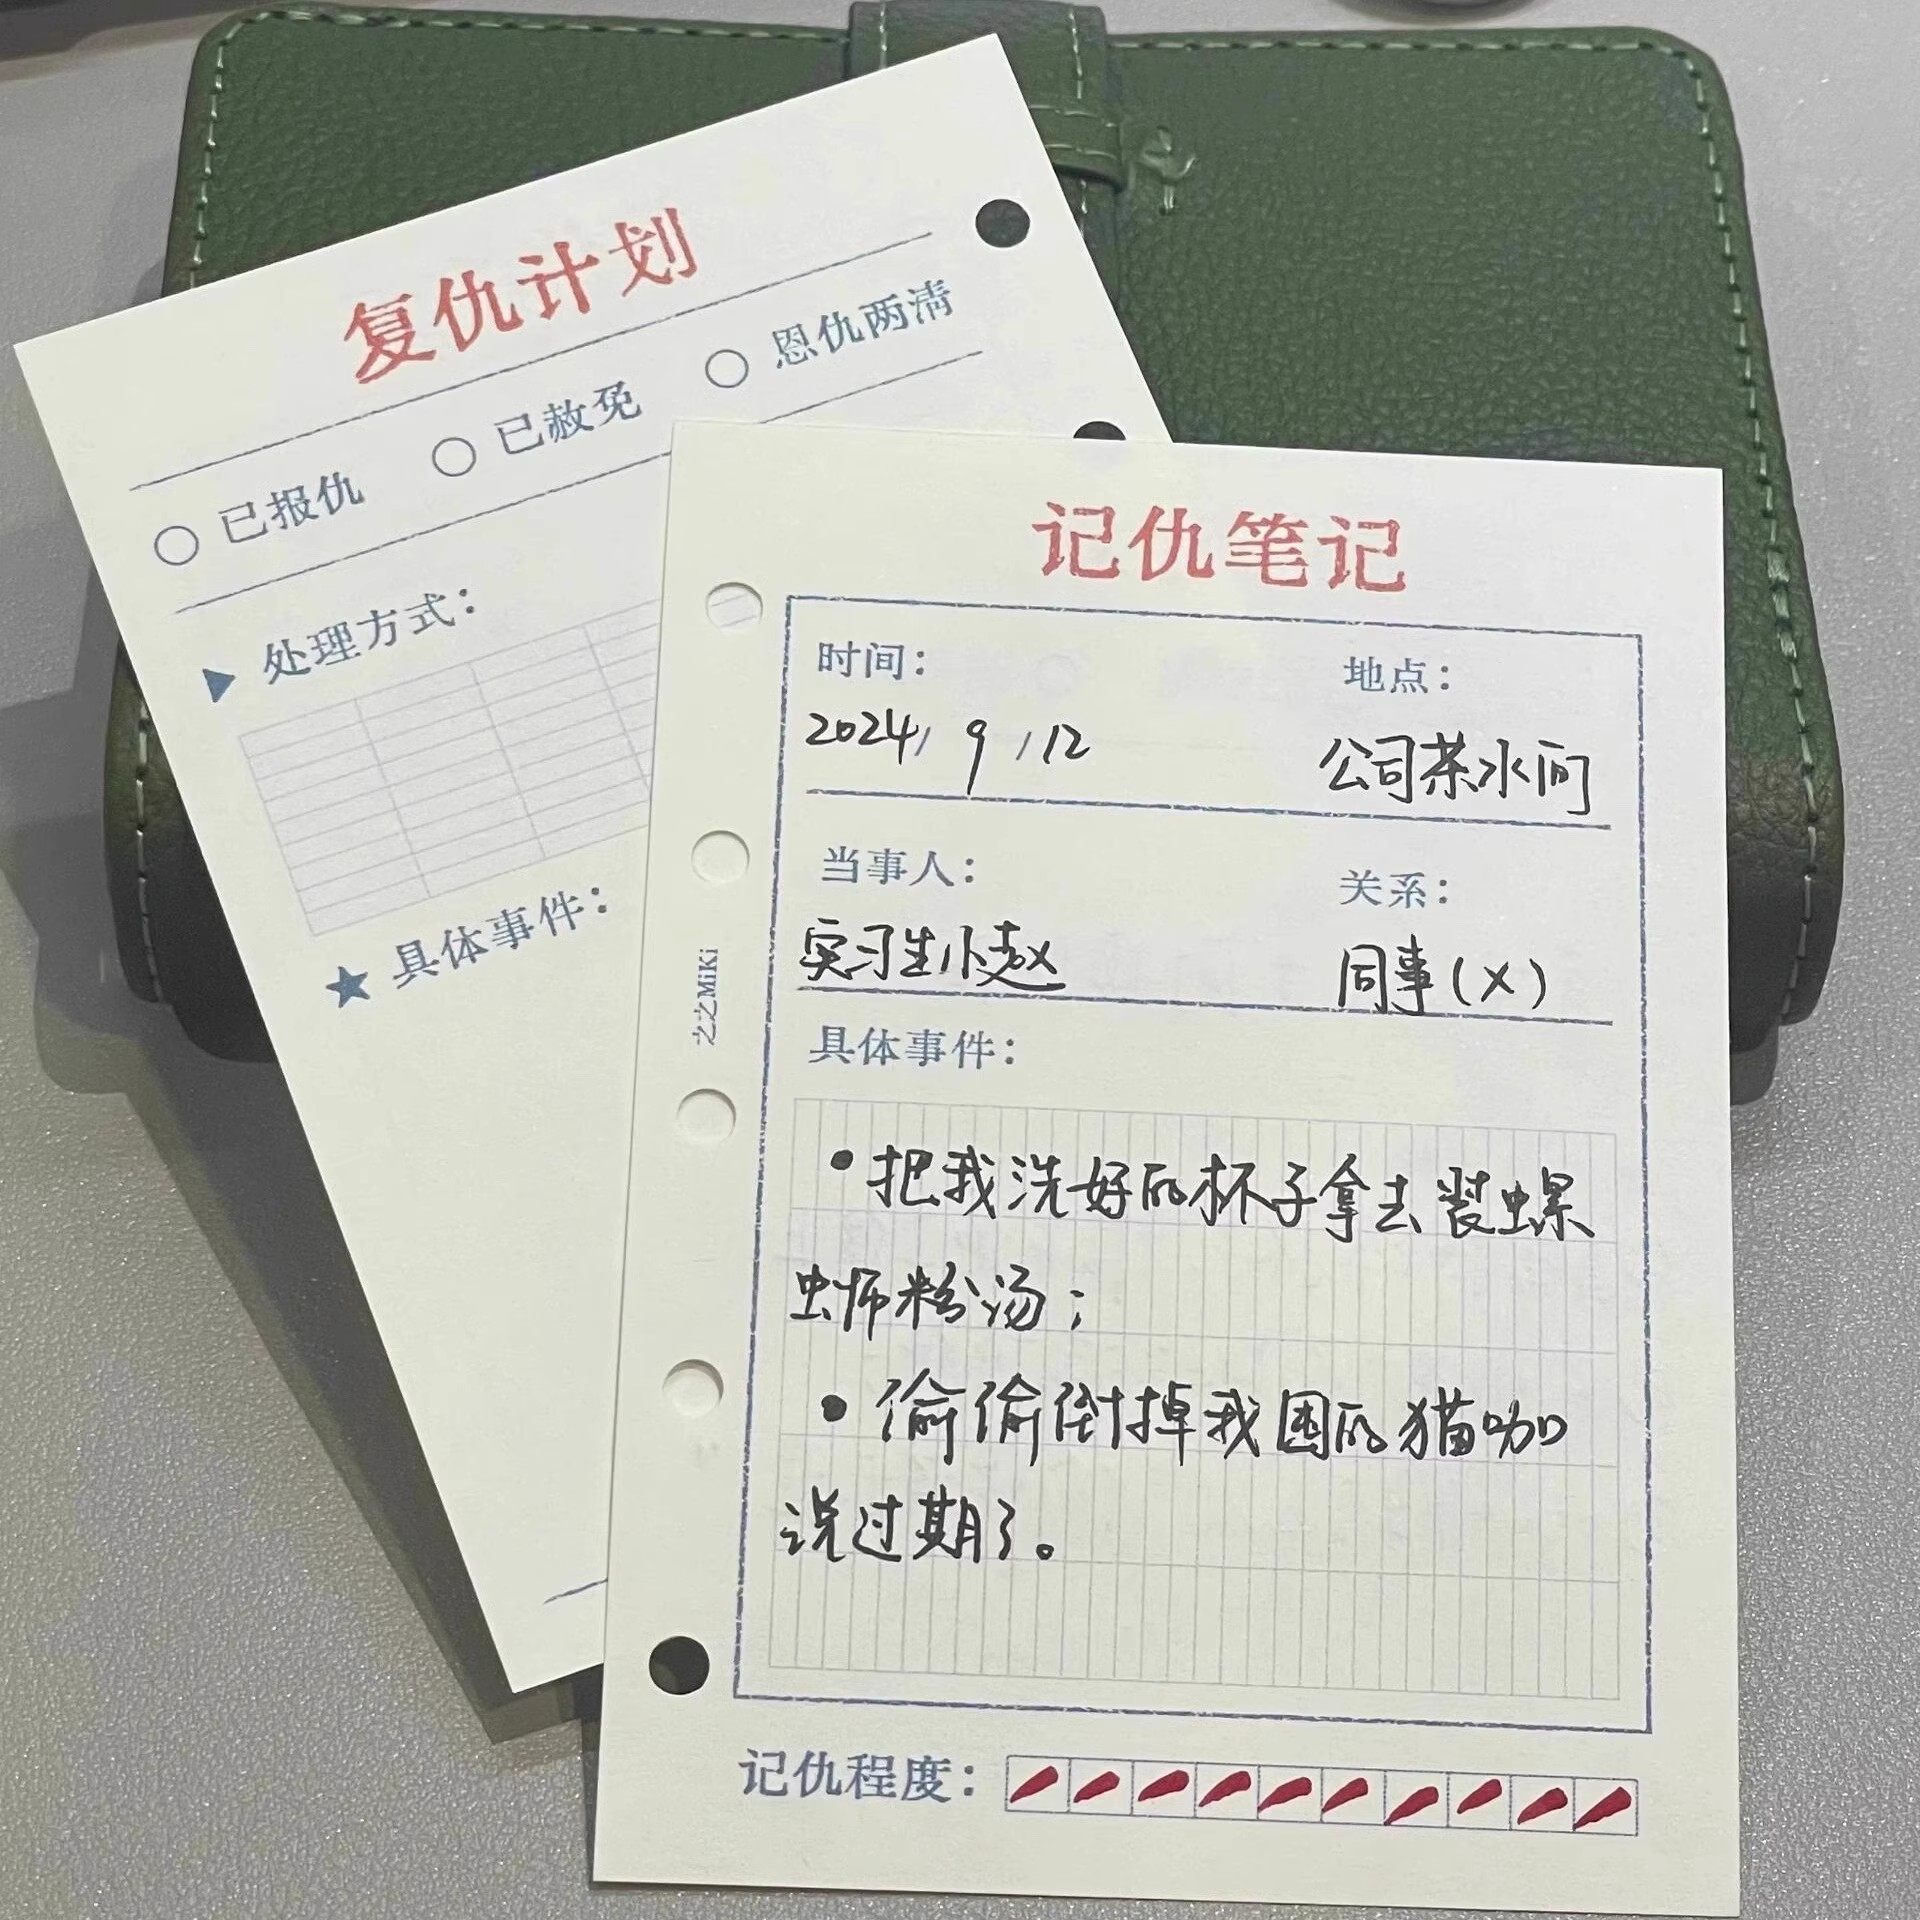 复仇计划
已报仇 已赦免 恩仇两清
处理方式：
具体事件：
记仇笔记
时间： 地点：
2024/9/12 公司茶水间
当事人： 关系：
实习生小赵 同事(X)
具体事件：
•把我洗好的杯子拿去装螺
蛳粉汤；
•偷偷倒掉我囤的猫咖
说过期了。
之之MiKi
记仇程度：